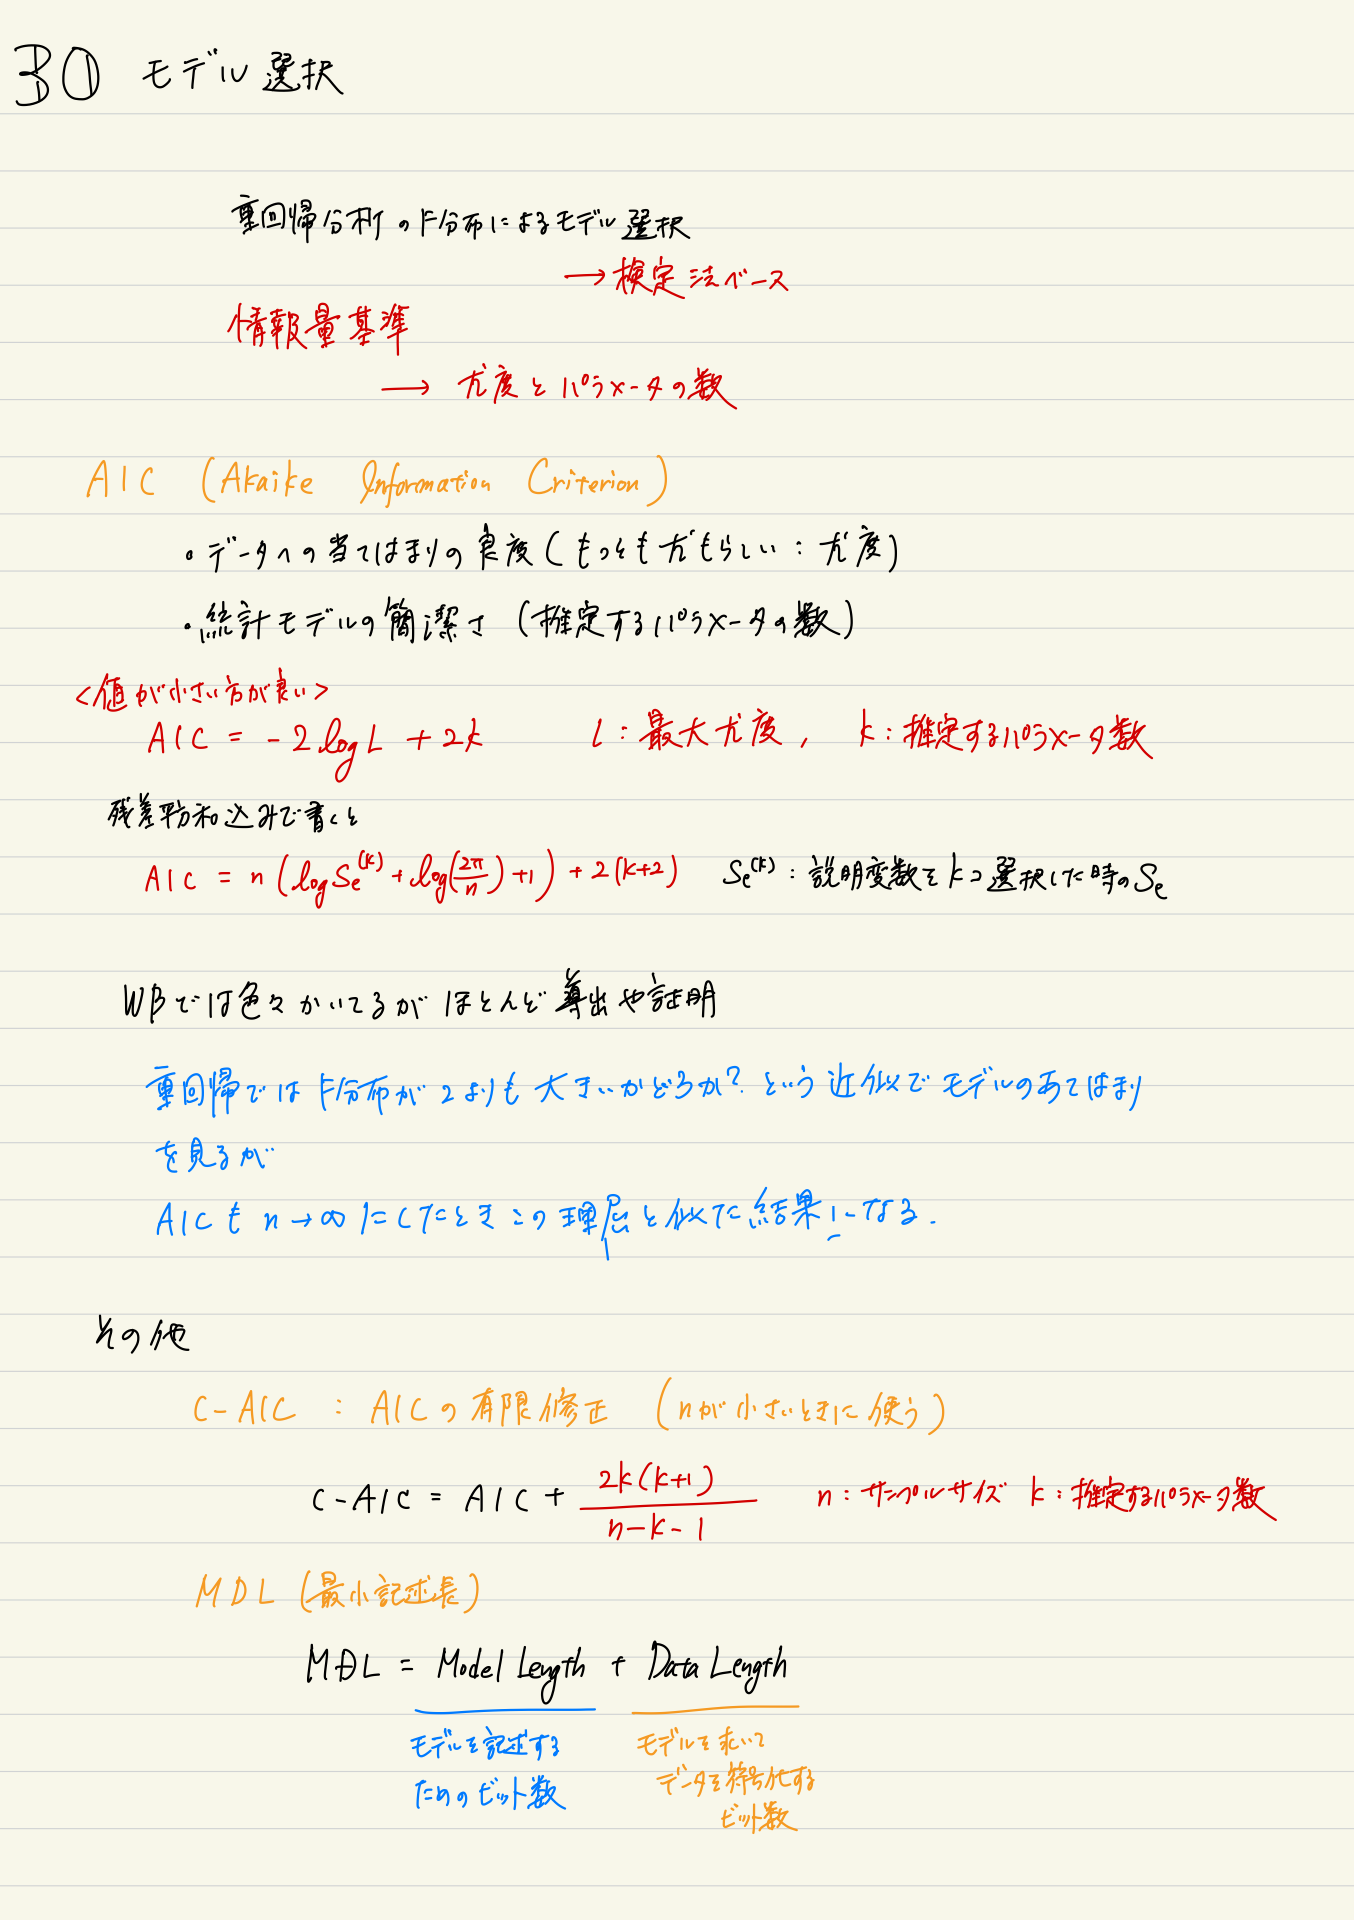 30 モデル選択
重回帰分析のF分布によるモデル選択
→検定法ベース
情報量基準
→ 尤度とパラメータの数
AIC (Akaike Information Criterion)
・データへの当てはまりの良度(もっとも尤もらしい:尤度)
・統計モデルの簡潔さ (推定するパラメータの数)
<値が小さい方が良い>
AIC = -2logL + 2k L:最大尤度, k:推定するパラメータ数
残差平方和込みで書くと
AIC = n(logSe^(k) + log(2π/n) + 1) + 2(k+2) Se^(k):説明変数をkコ選択した時のSe
WBでは色々かいてるがほとんど導出や証明
重回帰ではF分布が2よりも大きいかどうか?という近似でモデルのあてはまり
を見るが
AICもn→∞にしたときこの理屈と似た結果になる.
その他
C-AIC : AICの有限修正 (nが小さいときに使う)
C-AIC = AIC + 2k(k+1)/(n-k-1) n:サンプルサイズ k:推定するパラメータ数
MDL (最小記述長)
MDL = Model Length + Data Length
モデルを記述する モデルを求いて
ためのビット数 データを符号化する
ビット数